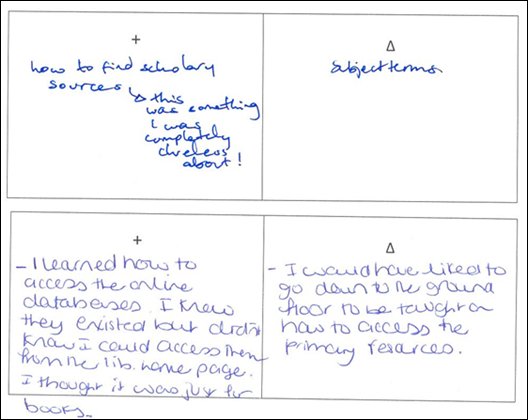 +
how to find scholary
sources ↳ this
was something
I was
completely
clueless
about!
Δ
subject terms
+
- I learned how to
access the online
databases. I knew
they existed but didn't
know I could access them
from the lib. home page.
I thought it was just for
books.
Δ
- I would have liked to
go down to the ground
floor to be taught on
how to access the
primary resources.